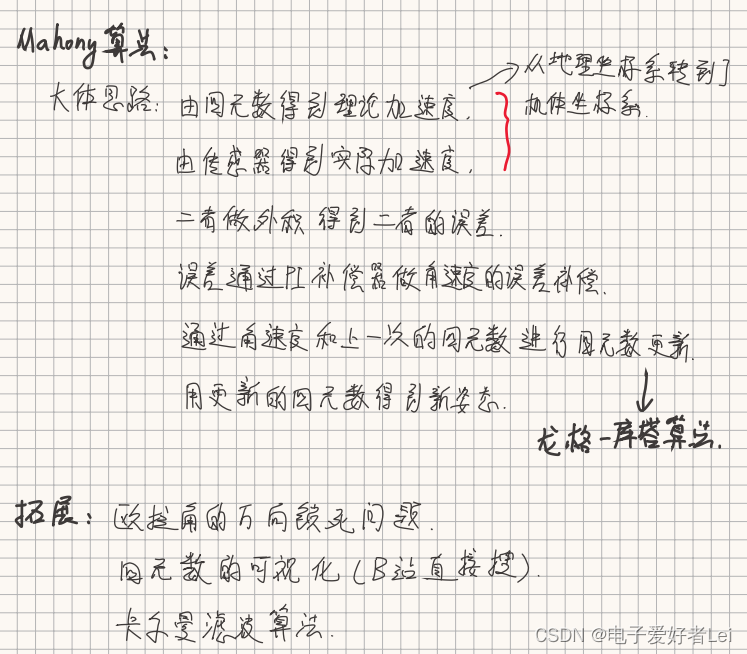 Mahony算法：
大体思路：由四元数得到理论加速度.
从地理坐标系转到
机体坐标系.
由传感器得到实际加速度.
二者做外积 得到二者的误差.
误差通过PI补偿器做角速度的误差补偿.
通过角速度和上一次的四元数 进行四元数更新.
用更新的四元数得到新姿态.
龙格-库塔算法.
拓展：欧拉角的万向锁死问题.
四元数的可视化（B站直接搜）.
卡尔曼滤波算法.
CSDN @电子爱好者Lei